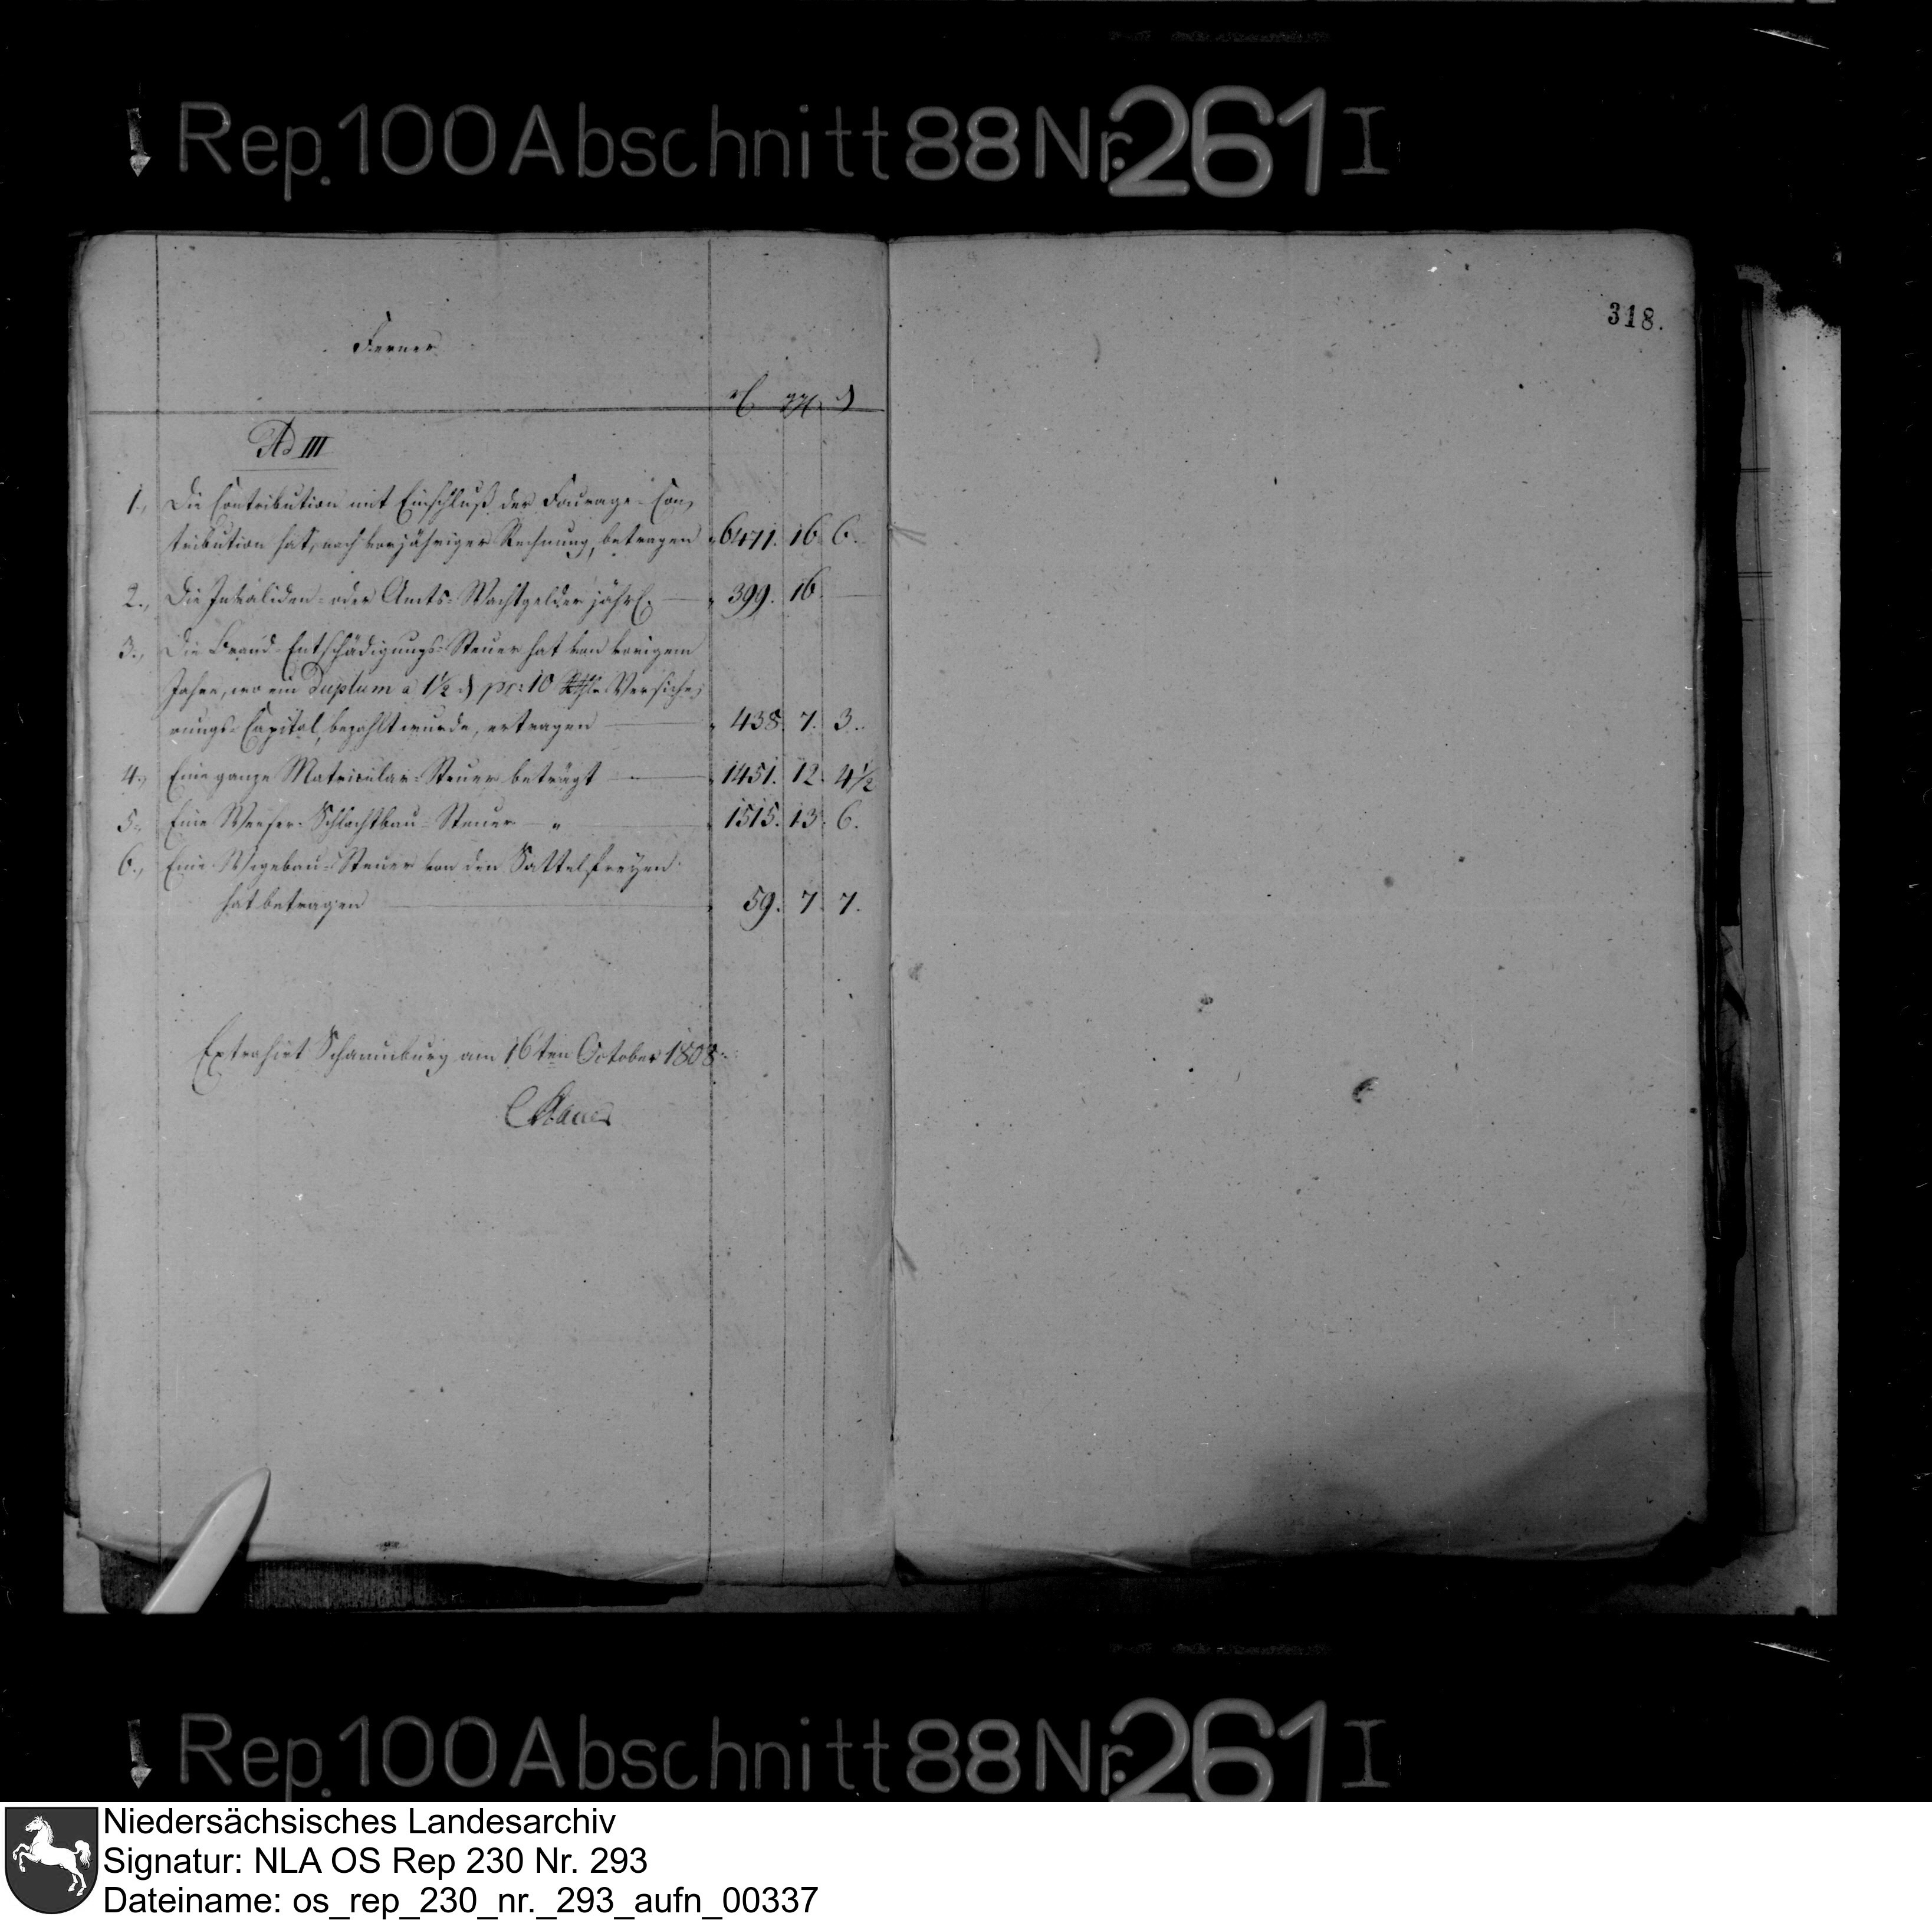 Rep. 100 Abschnitt 88 Nr. 261 I
318.
Ferner
rℓ ggl. ₰
Ad III
1., Die Contribution mit Einschluß der Fourage-Con-
tribution hat, nach vorjähriger Rechnung, betragen „ 6471. 16. 6.
2., Die Invaliden- oder Amts-Wachtgelder jährl. — „ 399. 16. —
3., Die Brand-Entschädigungs-Steuer hat von vorigem
Jahre, wo ein Duplum à 1½ ₰ pr: 10 Rthlr Versiche-
rungs-Capital, bezahlt wurde, ertragen — „ 438. 7. 3.
4., Eine ganze Matricular-Steuer beträgt — „ 1451. 12. 4½
5., Eine Weeser-Schlachtbau-Steuer — „ — „ 1515. 13. 6.
6., Eine Wegebau-Steuer von den Sattelfreyen
hat betragen — „ 59. 7. 7.
Extrahirt Schaumburg am 16ten October 1808.
Rep. 100 Abschnitt 88 Nr. 261 I
Niedersächsisches Landesarchiv
Signatur: NLA OS Rep 230 Nr. 293
Dateiname: os_rep_230_nr._293_aufn_00337